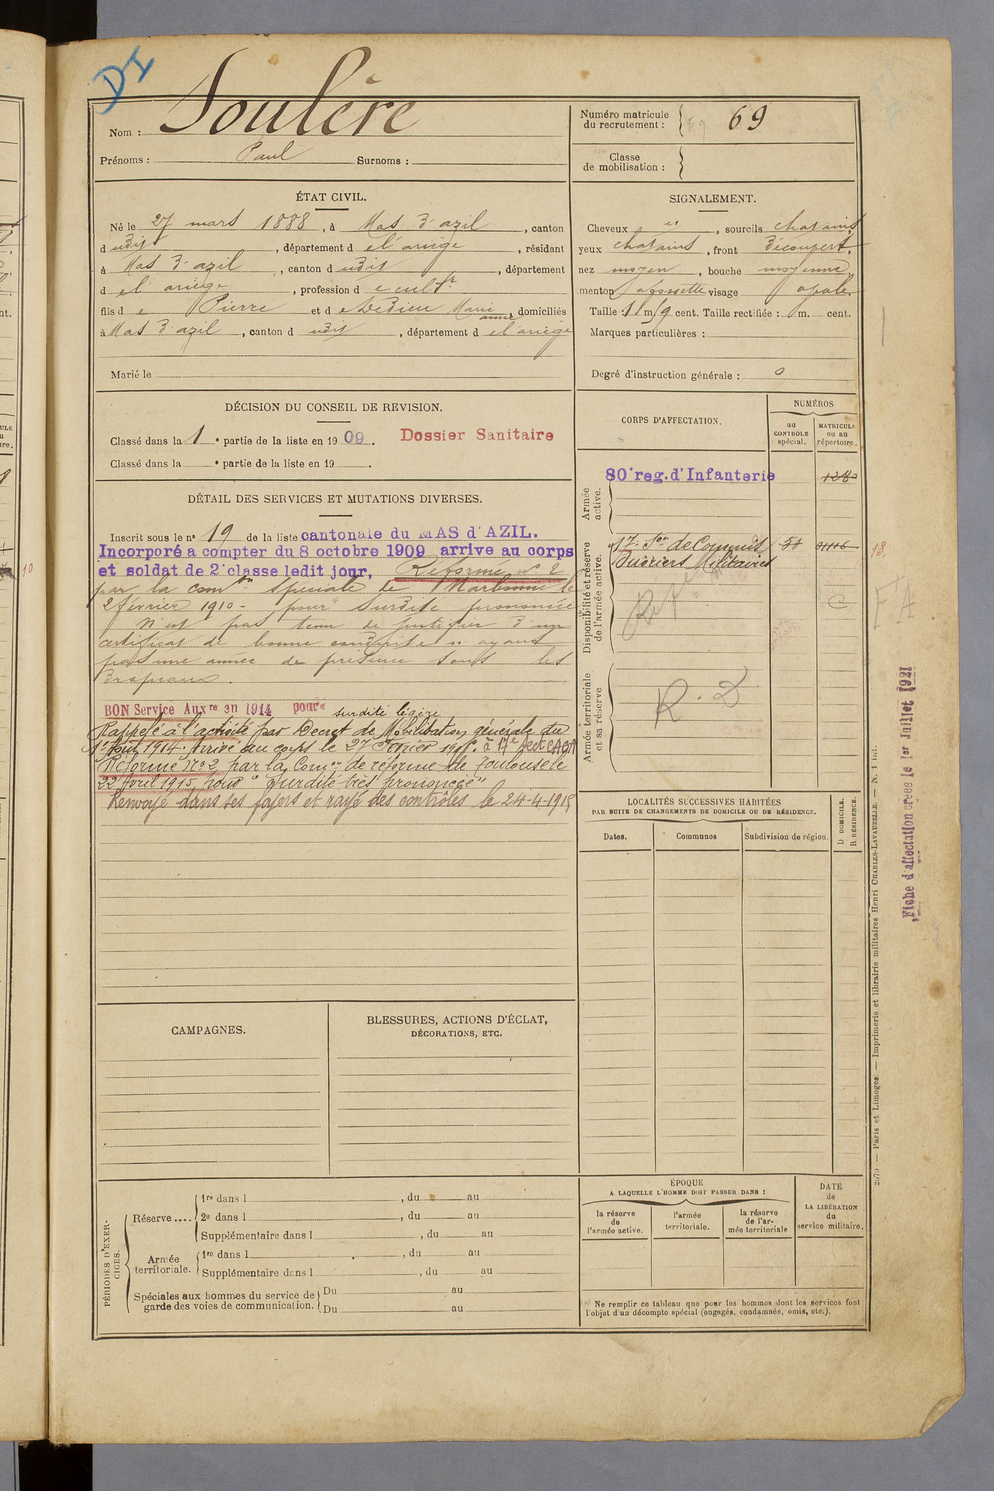 DI
Nom : Soulère
Prénoms : Paul Surnoms :
Numéro matricule
du recrutement : 69
Classe
de mobilisation :
ÉTAT CIVIL.
Né le 27 mars 1888, à Mas d'azil, canton
d udit, département d el ariège, résidant
à Mas d'azil, canton d udit, département
d el ariège, profession d e cultr
fils d e Pierre et d e Dedieu Marie anne, domiciliés
à Mas d'azil, canton d udit, département d el ariège
Marié le
SIGNALEMENT.
Cheveux et, sourcils chatains,
yeux chatains, front découvert,
nez moyen, bouche moyenne,
menton à fossette visage opale
Taille : 1 m. cent. Taille rectifiée : m. cent.
Marques particulières :
Degré d'instruction générale : 0
DÉCISION DU CONSEIL DE REVISION.
Classé dans la 1 e partie de la liste en 1909. Dossier Sanitaire
Classé dans la e partie de la liste en 19 .
DÉTAIL DES SERVICES ET MUTATIONS DIVERSES.
Inscrit sous le n° 19 de la liste cantonale du MAS d'AZIL.
Incorporé a compter du 8 octobre 1909 arrive au corps
et soldat de 2e classe ledit jour, Réformé n° 2
par la comon spéciale de Narbonne le
2 février 1910 - pour "Surdité prononcée
N'est pas tenu de justifier d'un
certificat de bonne conduite n'ayant
pas une année de présence sous les
drapeaux.
BON Service Auxre en 1914 pour "surdité légère
Rappelé à l'activité par Decret de Mobilisation générale du
1er Août 1914. Arrivé au corps le 27 Février 1915 à 17e Sect C.A.O.M
Réformé N°2 par la Comon de réforme de Toulouse le
22 Avril 1915 pour "surdité très prononcée"
Renvoyé dans ses foyers et rayé des contrôles le 24-4-1915
CORPS D'AFFECTATION.
NUMÉROS
au
CONTROLE
spécial.
MATRICULE
ou au
répertoire.
Armée
active.
80e reg. d'Infanterie
Disponibilité et réserve
de l'armée active.
17e Son de Commis
Ouvriers Militaires
Armée territoriale
et sa réserve.
R. D
Fiche d'affectation créée le 1er Juillet 1921
LOCALITÉS SUCCESSIVES HABITÉES
PAR SUITE DE CHANGEMENTS DE DOMICILE OU DE RÉSIDENCE.
Dates. Communes Subdivision de région.
D DOMICILE.
R RÉSIDENCE.
CAMPAGNES.
BLESSURES, ACTIONS D'ÉCLAT,
DÉCORATIONS, ETC.
PÉRIODES D'EXER-
CICES.
Réserve....
1re dans l , du au
2e dans l , du au
Supplémentaire dans l , du au
Armée
territoriale.
1re dans l , du au
Supplémentaire dans l , du au
Spéciales aux hommes du service de
garde des voies de communication.
Du au
Du au
ÉPOQUE
A LAQUELLE L'HOMME DOIT PASSER DANS :
la réserve
de
l'armée active.
l'armée
territoriale.
la réserve
de l'ar-
mée territoriale
DATE
de
LA LIBÉRATION
du
service militaire.
Ne remplir ce tableau que pour les hommes dont les services font
l'objet d'un décompte spécial (engagés, condamnés, omis, etc.).
Paris et Limoges. — Imprimerie et librairie militaires Henri CHARLES-LAVAUZELLE.